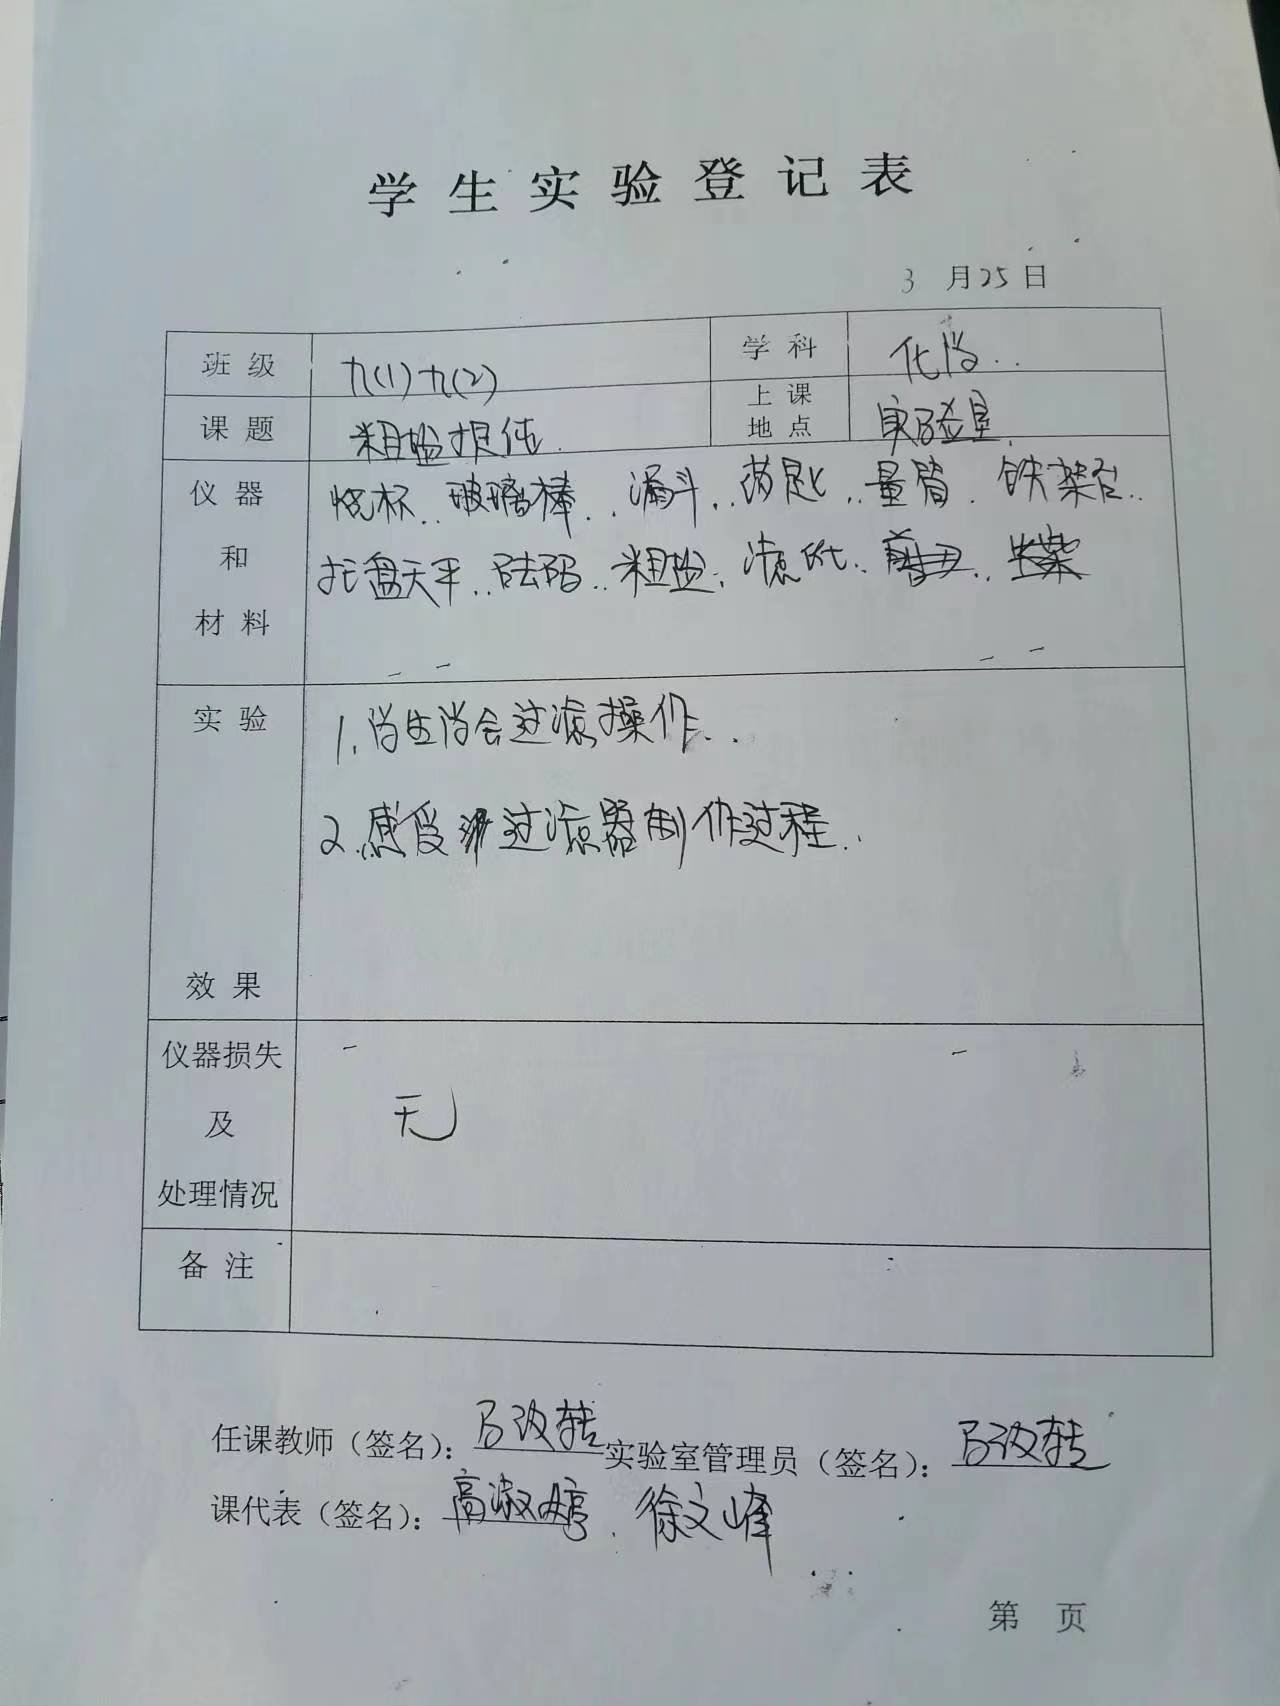 学生实验登记表
3月25日
班级 九(1)九(2) 学科 化学
课题 粗盐提纯 上课地点 实验室
仪器和材料 烧杯 玻璃棒 漏斗 药匙 量筒 铁架台
托盘天平 砝码 粗盐 滤纸
实验效果 1.学生学会过滤操作
2.感受过滤器制作过程
仪器损失及处理情况 无
备注
任课教师（签名）：马改转 实验室管理员（签名）：马改转
课代表（签名）：高淑婷 徐文峰
第 页